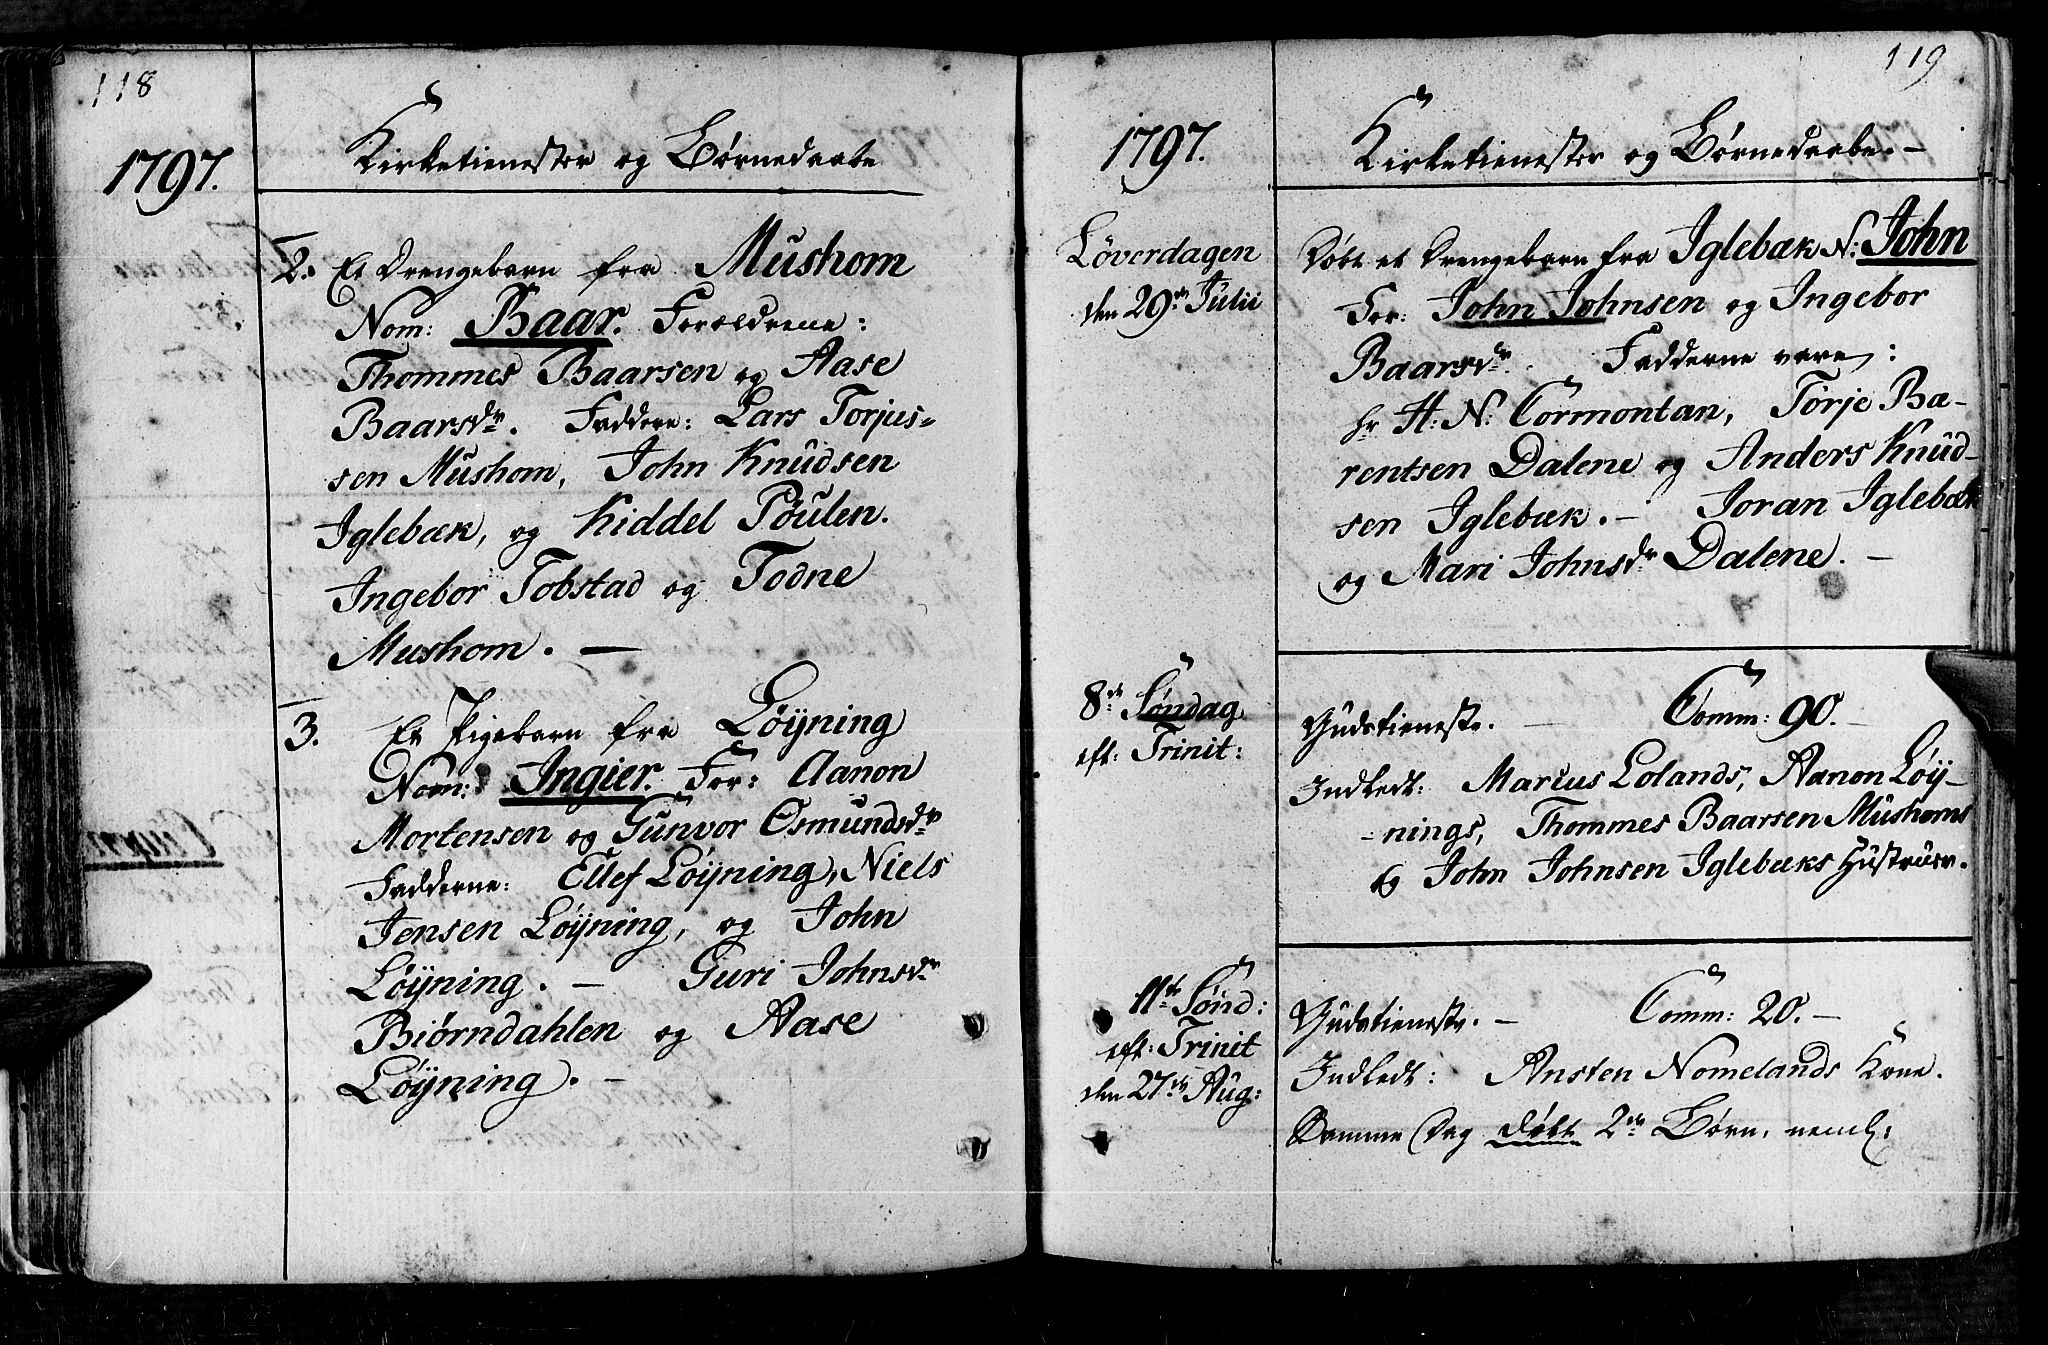 118
1797.
Kirketienester og Børnedaabe
2. Et Drengebarn fra Mushom
Nom: Baar. Forældrene:
Thommes Baarsen og Aase
Baarsdr. Faddere: Lars Torjus-
sen Mushom, John Knudsen
Iglebæk, og Kiddel Poulen.
Ingebor Tobstad og Todne
Mushom. —
3. Et Pigebarn fra Løyning
Nom: Ingier. For: Aanon
Mortensen og Gunvor Osmundsdr
Fadderne: Ellef Løyning, Niels
Jensen Løyning, og John
Løyning. — Guri Johnsdr
Biørndahlen og Aase
Løyning. —
119
1797.
Kirketienester og Børnedaabe. —
Løverdagen
den 29de Julii
Døbt et Drengebarn fra Iglebæk N: John
For: John Johnsen og Ingebor
Baarsdr. Fadderne vare:
Hr H: N: Cormontan, Torje Ba-
rentsen Dalene og Anders Knud-
sen Iglebæk. — Joran Iglebæk
og Mari Johnsdr Dalene. —
8de Søndag
eft: Trinit:
Gudstieneste. — Comm: 90. —
Indledt: Marcus Lolands, Aanon Løy-
-nings, Thommes Baarsen Mushoms
& John Johnsen Iglebæks Hustruer.
11te Sønd:
eft: Trinit
den 27de Aug:
Gudstieneste. — Comm: 20. —
Indledt: Ansten Nomelands Kone.
Samme Dag døbt 2de Børn, neml: